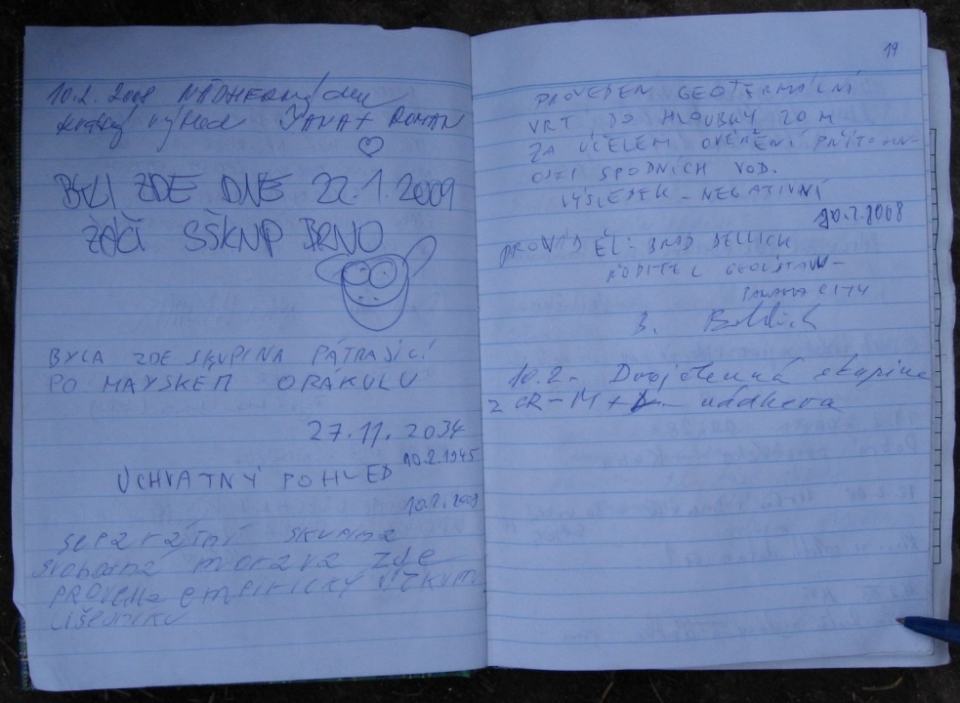 10.2. 2008 NÁDHERNÝ den
krásný výhled JANA + ROMAN
BYLI ZDE DNE 22.1.2009
ŽÁCI SŠKNP BRNO
BYLA ZDE SKUPINA PÁTRAJÍCÍ
PO MAYSKÉM ORÁKULU
27.11.2034
10.2.1945
ÚCHVATNÝ POHLED
10.2.2008
SEPARÁTNÍ SKUPINA
SVOBODNÁ MORAVA ZDE
PROVEDLA EMPIRICKÝ VÝZKUM
LIŠEJNÍKU
19
PROVEDEN GEOTERMÁLNÍ
VRT DO HLOUBKY 20 M
ZA ÚČELEM OVĚŘENÍ PŘÍTOMN-
OSTI SPODNÍCH VOD.
VÝSLEDEK - NEGATIVNÍ
10.2.2008
PROVÁDĚL: BRAD
ŘEDITEL
PANAMA CITY
B.
10.2. - Dvojčlenná skupina
z ČR - M + nádhera